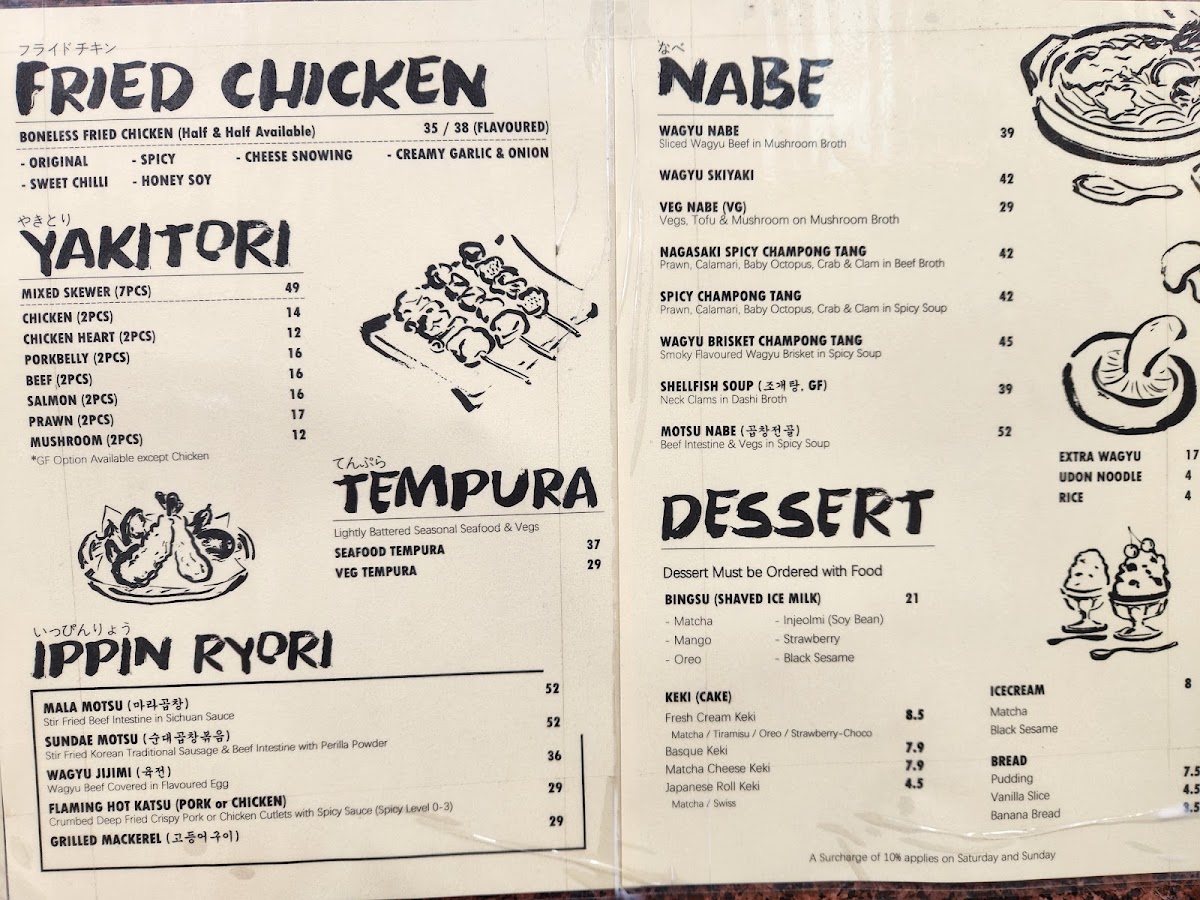 フライドチキン
FRIED CHICKEN
BONELESS FRIED CHICKEN (Half & Half Available) 35 / 38 (FLAVOURED)
- ORIGINAL - SPICY - CHEESE SNOWING - CREAMY GARLIC & ONION
- SWEET CHILLI - HONEY SOY
やきとり
YAKITORI
MIXED SKEWER (7PCS) 49
CHICKEN (2PCS) 14
CHICKEN HEART (2PCS) 12
PORKBELLY (2PCS) 16
BEEF (2PCS) 16
SALMON (2PCS) 16
PRAWN (2PCS) 17
MUSHROOM (2PCS) 12
*GF Option Available except Chicken
てんぷら
TEMPURA
Lightly Battered Seasonal Seafood & Vegs
SEAFOOD TEMPURA 37
VEG TEMPURA 29
いっぴんりょう
IPPIN RYORI
MALA MOTSU (마라곱창) 52
Stir Fried Beef Intestine in Sichuan Sauce
SUNDAE MOTSU (순대곱창볶음) 52
Stir Fried Korean Traditional Sausage & Beef Intestine with Perilla Powder
WAGYU JIJIMI (육전) 36
Wagyu Beef Covered in Flavoured Egg
FLAMING HOT KATSU (PORK or CHICKEN) 29
Crumbed Deep Fried Crispy Pork or Chicken Cutlets with Spicy Sauce (Spicy Level 0-3)
GRILLED MACKEREL (고등어구이) 29
なべ
NABE
WAGYU NABE 39
Sliced Wagyu Beef in Mushroom Broth
WAGYU SKIYAKI 42
VEG NABE (VG) 29
Vegs, Tofu & Mushroom on Mushroom Broth
NAGASAKI SPICY CHAMPONG TANG 42
Prawn, Calamari, Baby Octopus, Crab & Clam in Beef Broth
SPICY CHAMPONG TANG 42
Prawn, Calamari, Baby Octopus, Crab & Clam in Spicy Soup
WAGYU BRISKET CHAMPONG TANG 45
Smoky Flavoured Wagyu Brisket in Spicy Soup
SHELLFISH SOUP (조개탕, GF) 39
Neck Clams in Dashi Broth
MOTSU NABE (곱창전골) 52
Beef Intestine & Vegs in Spicy Soup
EXTRA WAGYU 17
UDON NOODLE 4
RICE 4
DESSERT
Dessert Must be Ordered with Food
BINGSU (SHAVED ICE MILK) 21
- Matcha - Injeolmi (Soy Bean)
- Mango - Strawberry
- Oreo - Black Sesame
KEKI (CAKE)
Fresh Cream Keki 8.5
Matcha / Tiramisu / Oreo / Strawberry-Choco
Basque Keki 7.9
Matcha Cheese Keki 7.9
Japanese Roll Keki 4.5
Matcha / Swiss
ICECREAM 8
Matcha
Black Sesame
BREAD
Pudding 7.5
Vanilla Slice 4.5
Banana Bread
A Surcharge of 10% applies on Saturday and Sunday